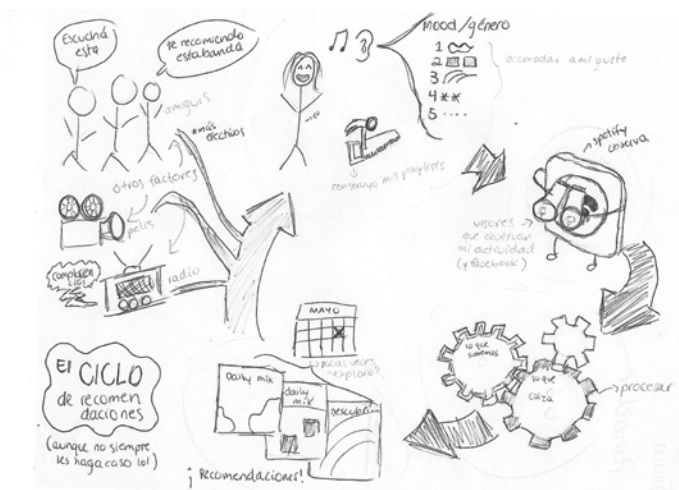 Escuchá
esta
te recomiendo
esta banda
amiguis
*más
efectivos
otros factores
pelis
radio
yo
Mood/género
1
2
3
4 **
5 ....
acomodar a mi gusto
construyo mis playlists
spotify
observa
visores
que observan
mi actividad
(y facebook)
lo que
lo que
procesar
MAYO
Daily mix
daily
mix
¡Recomendaciones!
El CICLO
de recomen
daciones
(aunque no siempre
les haga caso lol)